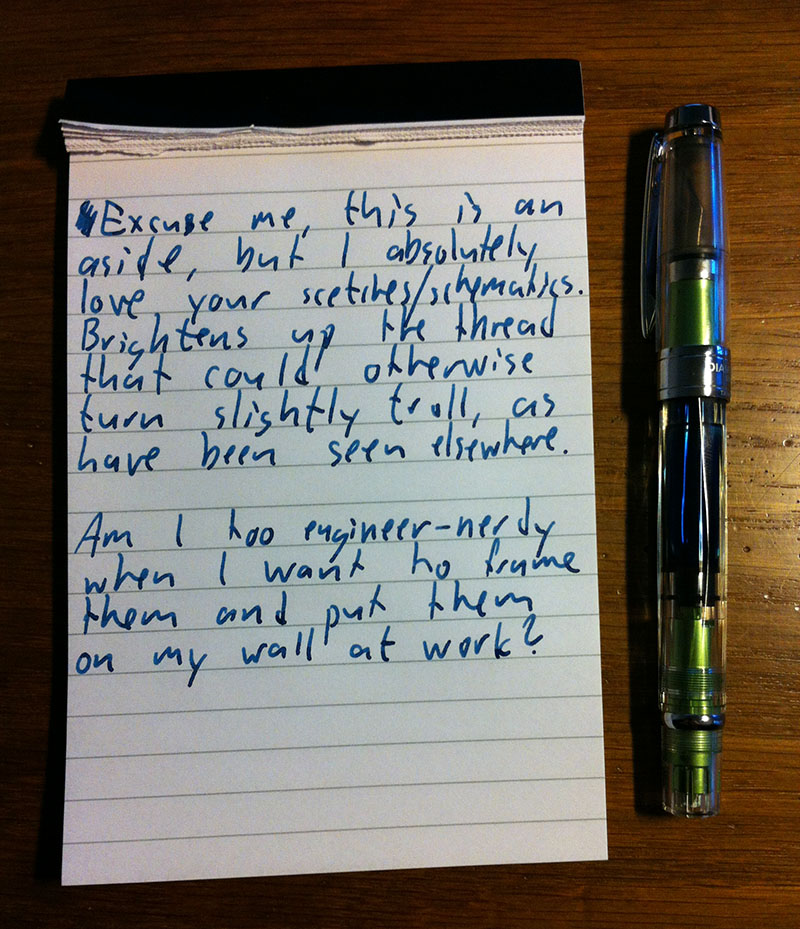 Excuse me, this is an
aside, but I absolutely
love your scetches/schematics.
Brightens up the thread
that could otherwise
turn slightly troll, as
have been seen elsewhere.
Am I too engineer-nerdy
when I want to frame
them and put them
on my wall at work?
DIA